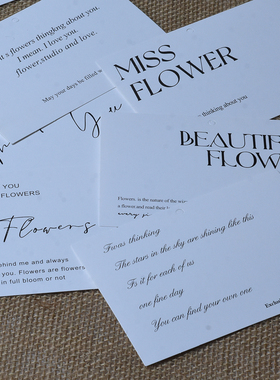 it's flowers thinging about you.
I mean. I love you.
flower,studio and love.
May your days be filled w
MISS
FLOWER
thinking about you
YOU
FLOWERS
Flowers
ehind me and always
you. Flowers are flowers
in full bloom or not
BEAUTIF
FLOW
Flowers, is the nature of the
a flower and read their
every
I was thinking
The stars in the sky are shining like this
Is it for each of us
one fine day
You can find your own one
Exclu